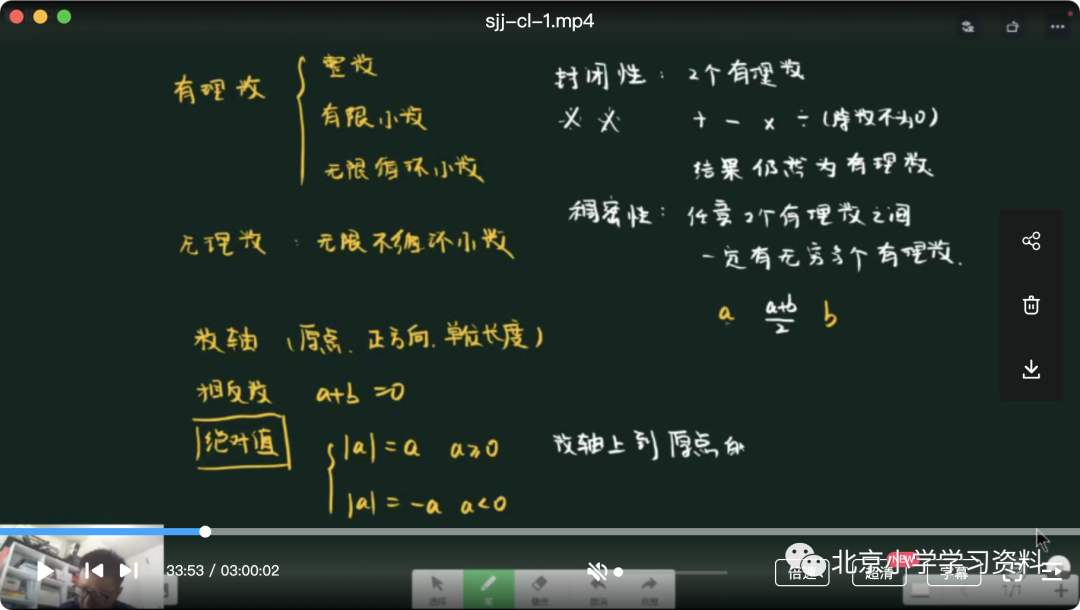 sjj-cl-1.mp4
有理数
整数
有限小数
无限循环小数
无理数:无限不循环小数
数轴(原点、正方向、单位长度)
相反数 a+b=0
绝对值
|a|=a a≥0
|a|=-a a<0
封闭性:2个有理数
+ - × ÷(除数不为0)
结果仍然为有理数
稠密性:任意2个有理数之间
一定有无穷多个有理数.
a (a+b)/2 b
数轴上到原点的
33:53 / 03:00:02
北京小学学习资料
倍速
超清
NEW
字幕
选择
笔
1/1